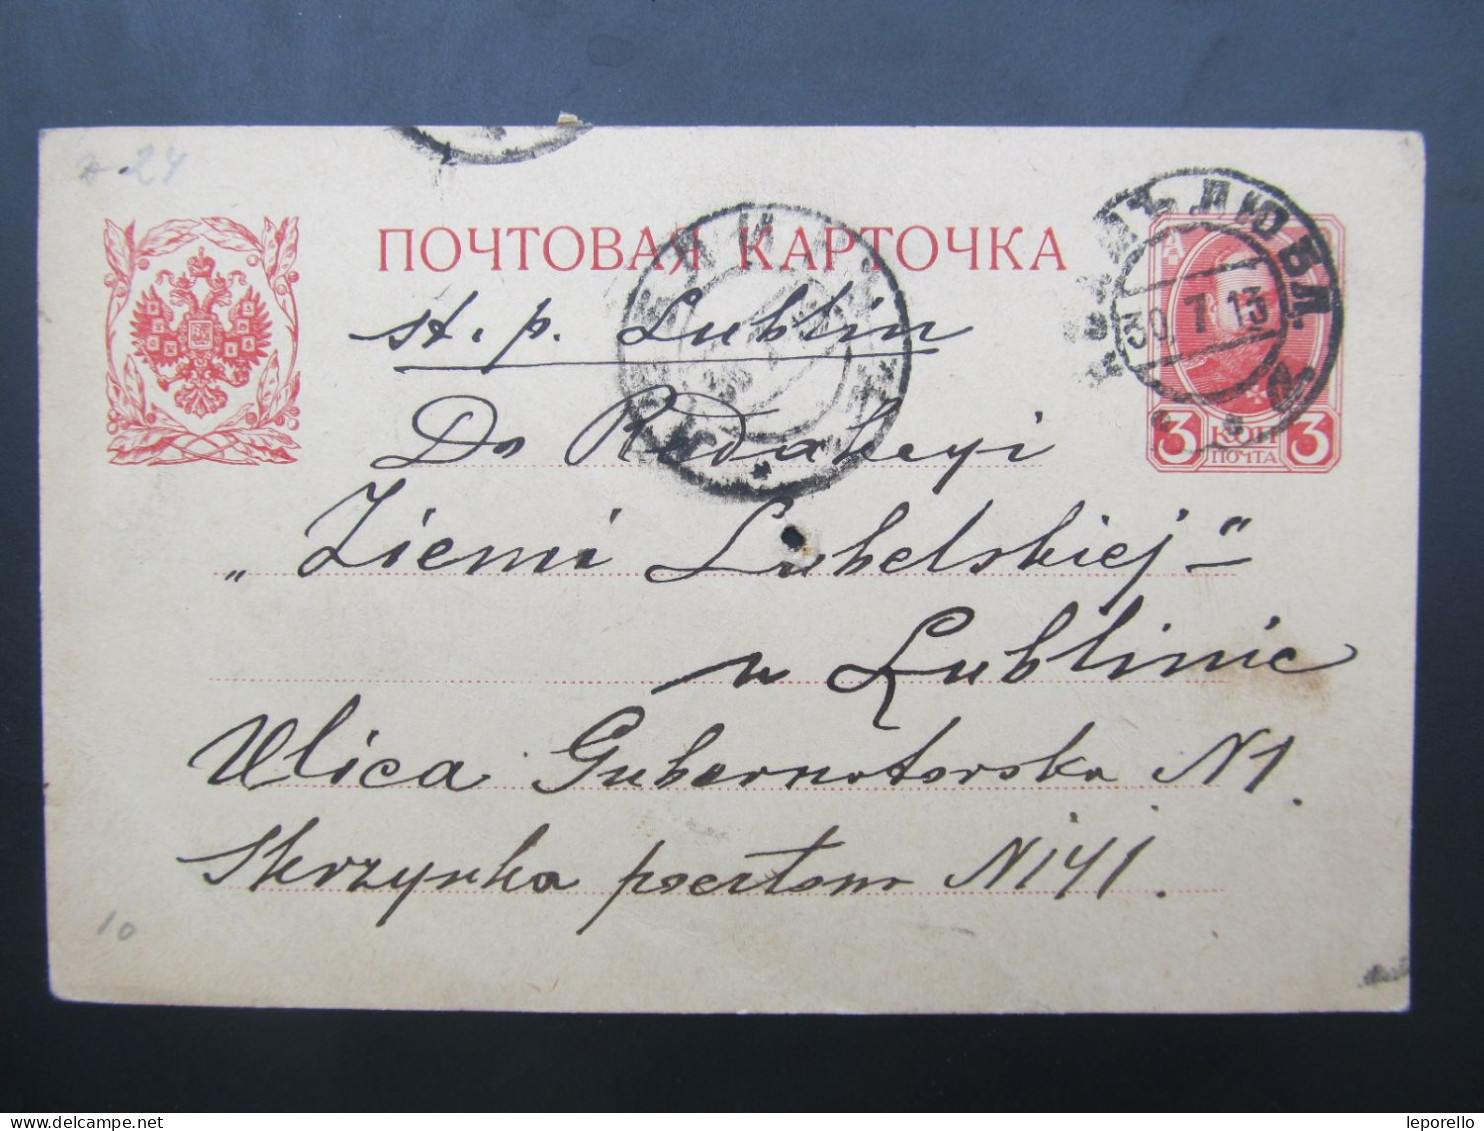 24
ПОЧТОВАЯ КАРТОЧКА
30 7 13
3 КОП 3
ПОЧТА
st. p. Lublin
Do Redakcyi
„Ziemi Lubelskiej"
w Lublinie
Ulica Gubernatorska N1.
Skrzynka pocztowa N141.
10
leporello